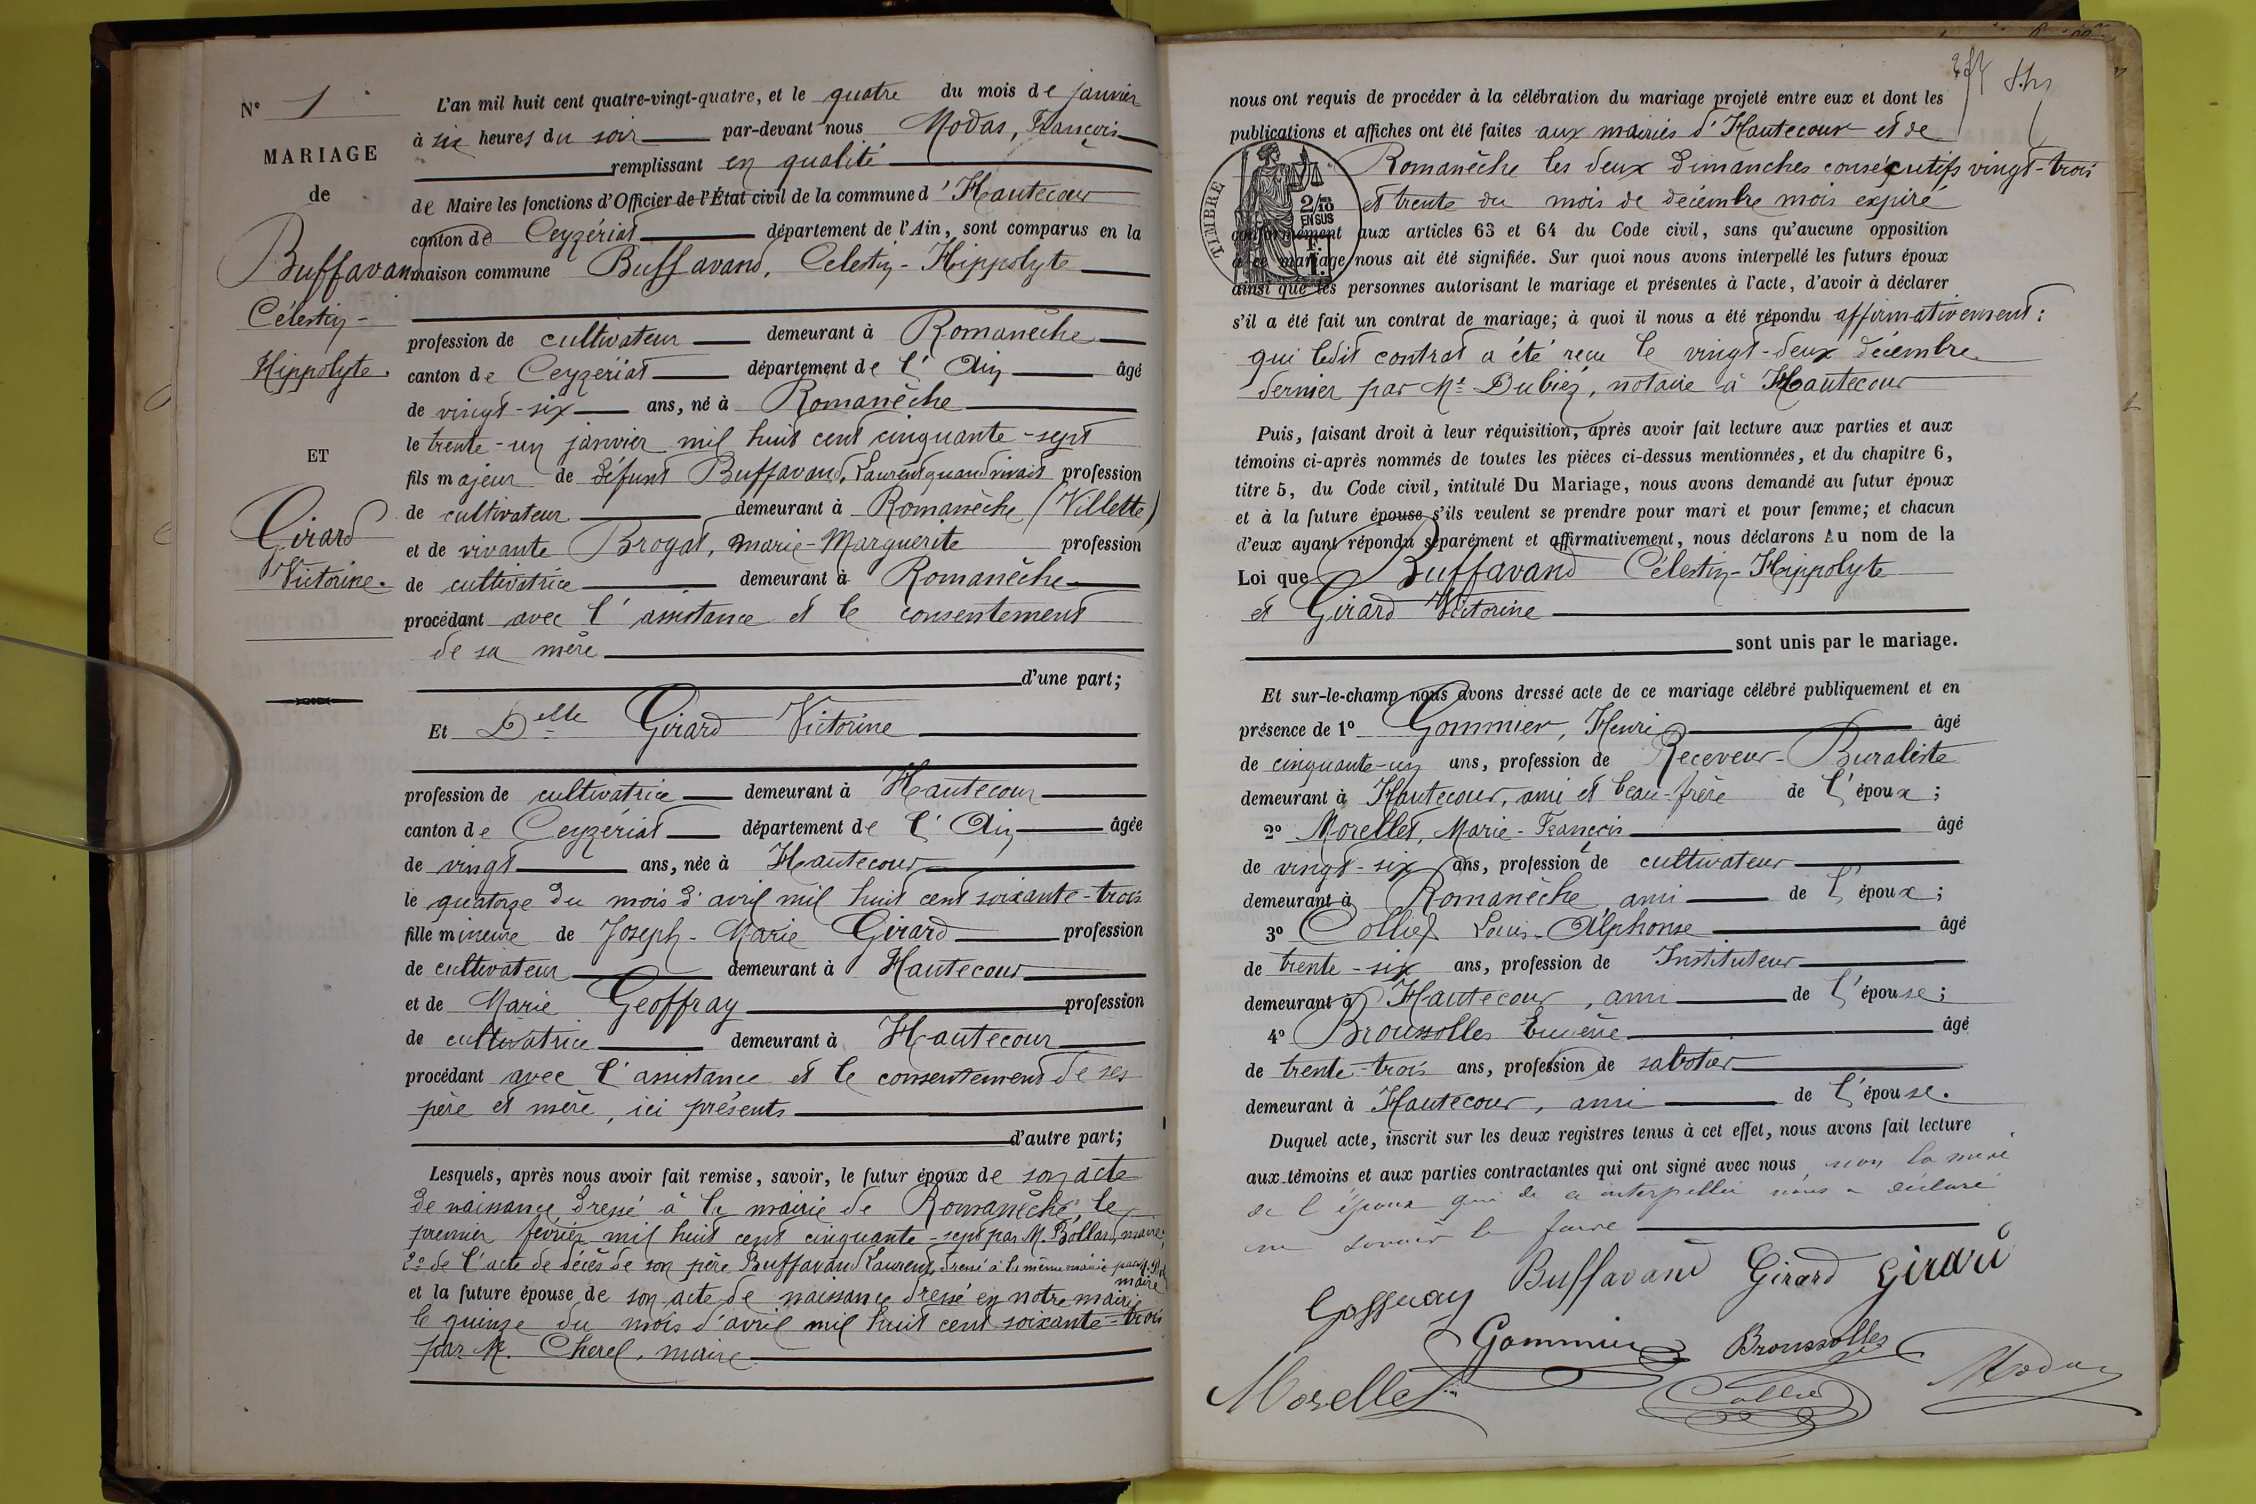 N° 1
MARIAGE
de
Buffavand
Célestin-
Hippolyte.
ET
Girard
Victorine.
L'an mil huit cent quatre-vingt-quatre, et le quatre du mois de janvier
à six heures du soir par-devant nous Modas, François
remplissant en qualité
de Maire les fonctions d'Officier de l'État civil de la commune d'Hautecour
canton de Ceyzériat département de l'Ain, sont comparus en la
maison commune Buffavand, Celestin-Hippolyte
profession de cultivateur demeurant à Romanèche
canton de Ceyzériat département de l'Ain âgé
de vingt-six ans, né à Romanèche
le trente-un janvier mil huit cent cinquante-sept
fils majeur de défunt Buffavand, Laurent quand vivait profession
de cultivateur demeurant à Romanèche (Villette)
et de vivante Brogat, marie-Marguerite profession
de cultivatrice demeurant à Romanèche
procédant avec l'assistance et le consentement
de sa mère
d'une part;
Et Delle Girard Victorine
profession de cultivatrice demeurant à Hautecour
canton de Ceyzériat département de l'Ain âgée
de vingt ans, née à Hautecour
le quatorze du mois d'avril mil huit cent soixante-trois
fille mineure de Joseph-Marie Girard profession
de cultivateur demeurant à Hautecour
et de Marie Geoffray profession
de cultivatrice demeurant à Hautecour
procédant avec l'assistance et le consentement de ses
père et mère, ici présents
d'autre part;
Lesquels, après nous avoir fait remise, savoir, le futur époux de son acte
de naissance dressé à la mairie de Romanèche, le
premier février mil huit cent cinquante-sept par M. Bollard, maire;
2° de l'acte de décès de son père Buffavand Laurent, dressé à la même mairie par
maire
et la future épouse de son acte de naissance dressé en notre mairie
le quinze du mois d'avril mil huit cent soixante-trois
par M. Cherel, maire
nous ont requis de procéder à la célébration du mariage projeté entre eux et dont les
publications et affiches ont été faites aux mairies d'Hautecour et de
Romanèche les deux dimanches consécutifs vingt-trois
et trente du mois de décembre mois expiré
conformément aux articles 63 et 64 du Code civil, sans qu'aucune opposition
à ce mariage nous ait été signifiée. Sur quoi nous avons interpellé les futurs époux
ainsi que les personnes autorisant le mariage et présentes à l'acte, d'avoir à déclarer
s'il a été fait un contrat de mariage; à quoi il nous a été répondu affirmativement:
qui ledit contrat a été reçu le vingt-deux décembre
dernier par Me Dubiez, notaire à Hautecour
TIMBRE
2/10
EN SUS
Puis, faisant droit à leur réquisition, après avoir fait lecture aux parties et aux
témoins ci-après nommés de toutes les pièces ci-dessus mentionnées, et du chapitre 6,
titre 5, du Code civil, intitulé Du Mariage, nous avons demandé au futur époux
et à la future épouse s'ils veulent se prendre pour mari et pour femme; et chacun
d'eux ayant répondu séparément et affirmativement, nous déclarons Au nom de la
Loi que Buffavand Célestin-Hippolyte
et Girard Victorine
sont unis par le mariage.
Et sur-le-champ nous avons dressé acte de ce mariage célébré publiquement et en
présence de 1° Gommier, Henri âgé
de cinquante-un ans, profession de Receveur-Buraliste
demeurant à Hautecour, ami et beau-frère de l'époux;
2° Morellet, Marie-François âgé
de vingt-six ans, profession de cultivateur
demeurant à Romanèche ami de l'époux;
3° Colliex Louis-Alphonse âgé
de trente-six ans, profession de Instituteur
demeurant à Hautecour, ami de l'épouse;
4° Broussolles Eugène âgé
de trente-trois ans, profession de sabotier
demeurant à Hautecour, ami de l'épouse.
Duquel acte, inscrit sur les deux registres tenus à cet effet, nous avons fait lecture
aux témoins et aux parties contractantes qui ont signé avec nous, non la mère
de l'époux qui de ce interpellée nous a déclaré
ne savoir le faire
Buffavand Girard Girard
Goffray
Gommier Broussolles
Morellet Modas